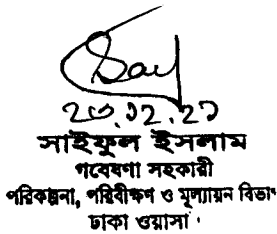 ২৩.১২.২১
সাইফুল ইসলাম
গবেষণা সহকারী
পরিকল্পনা, পরিবীক্ষণ ও মূল্যায়ন বিভা
ঢাকা ওয়াসা